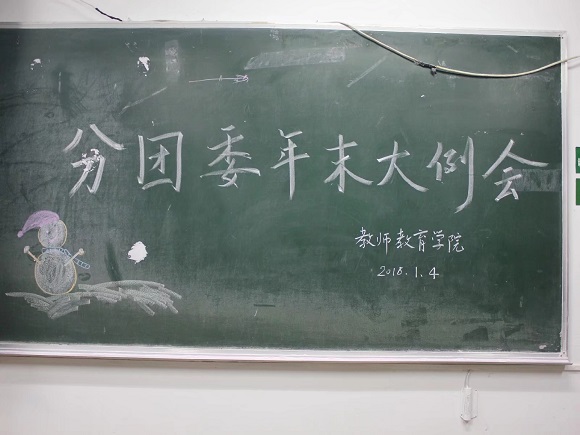 分团委年末大例会
教师教育学院
2018.1.4